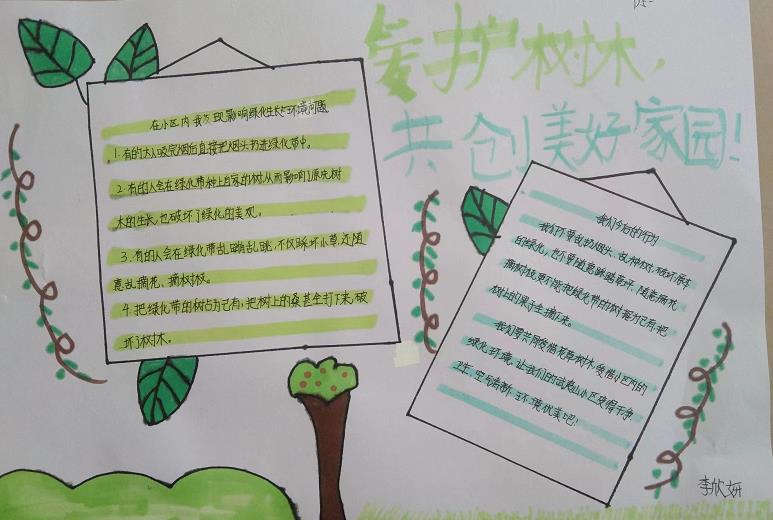 爱护树木，
共创美好家园！
在小区内我发现影响绿化生长与环境问题
1.有的大人吸完烟后直接把烟头扔进绿化带中。
2.有的人会在绿化带种上自家的树从而影响了原先树
木的生长，也破坏了绿化的美观。
3.有的人会在绿化带乱踏乱跳，不仅踩坏小草，还随
意乱摘花、摘树枝。
4.把绿化带的树占为己有，把树上的桑葚全打下来，破
坏了树木。
我们今后的行为
我们不要乱扔烟头、乱种树，破坏原本
的绿化，也不要随意踏踏草坪、随意摘花
摘树枝更不能把绿化带的树占为己有，把
树上的果子全摘下来。
我们要共同爱惜花草树木，爱惜小区内的
绿化环境，让我们的武夷山小区变得干净
卫生、空气清新、环境优美吧！
李欣妍